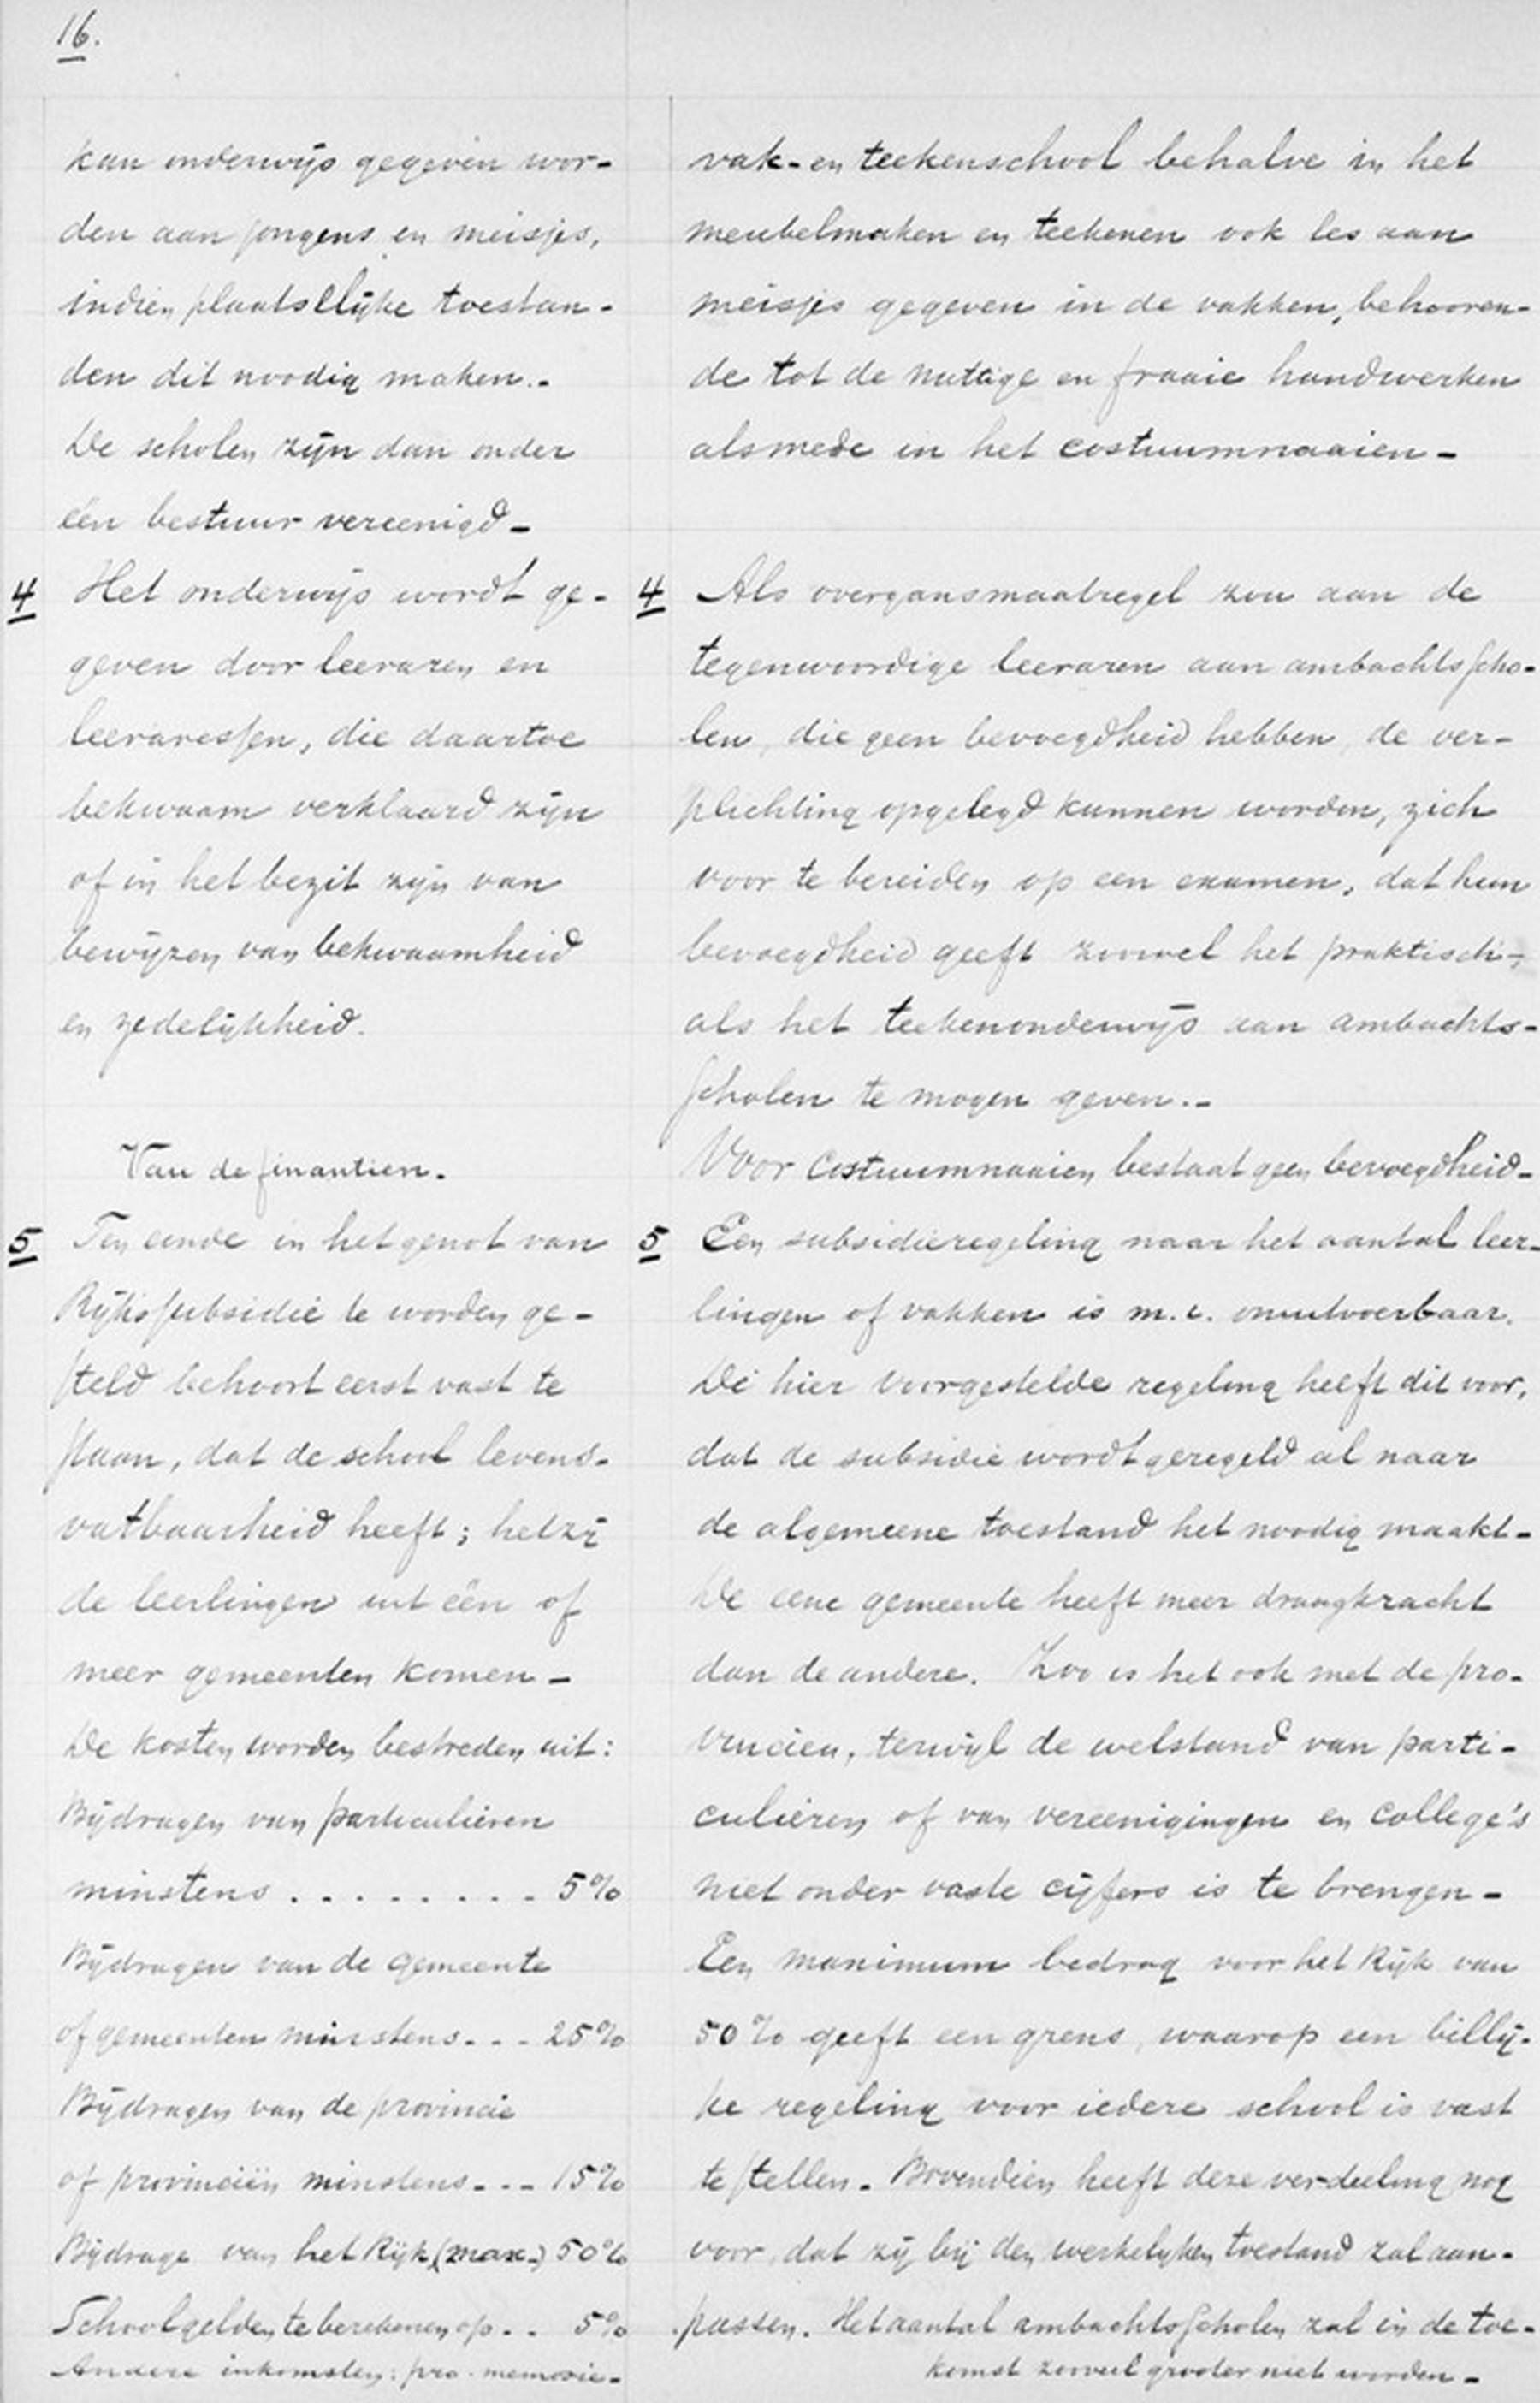 16.
kan onderwijs gegeven wor-
den aan jongens en meisjes,
indien plaatsllijke toestan-
den dit noodig maken.-
De scholen zijn dan onder
één bestuur vereenigd-
4 Het onderwijs wordt ge-
geven door leeraren en
leeraressen, die daartoe
bekwaam verklaard zijn
of in het bezit zijn van
bewijzen van bekwaamheid
en zedelijkheid.
Van de finantien.
5 Ten einde in het genot van
Rijkssubsidie te worden ge-
steld behoort eerst vast te
staan, dat de school levens-
vatbaarheid heeft; hetzij
de leerlingen uit één of
meer gemeenten komen-
De kosten worden bestreden uit:
Bijdragen van particulieren
minstens . . . . . . . . - 5%
Bijdragen van de gemeente
of gemeenten minstens. - - 25%
Bijdragen van de provincie
of provinciën minstens - . - 15%
Bijdrage van het Rijk (max-) 50%
Schoolgelden te berekenen op . . 5%
Andere inkomsten: pro-memorie-
vak- en teekenschool behalve in het
meubelmaken en teekenen ook les aan
meisjes gegeven in de vakken, behooren-
de tot de nuttige en fraaie handwerken
alsmede in het costuumnaaien-
4 Als overgansmaatregel zou aan de
tegenwoordige leeraren aan ambachtsscho-
len, die geen bevoegdheid hebben, de ver-
plichting opgelegd kunnen worden, zich
voor te bereiden op een examen, dat hun
bevoegdheid geeft zoowel het praktisch-,
als het teekenonderwijs aan ambachts-
scholen te mogen geven.-
Voor Costuumnaaien bestaat geen bevoegdheid-
5 Een subsidieregeling naar het aantal leer-
lingen of vakken is m.i. onuitvoerbaar.
De hier voorgestelde regeling heeft dit voor,
dat de subsidie wordt geregeld al naar
de algemeene toestand het noodig maakt-
De eene gemeente heeft meer draagkracht
dan de andere. Zoo is het ook met de pro-
vincien, terwijl de welstand van parti-
culieren of van vereenigingen en college's
niet onder vaste cijfers is te brengen-
Een maximum bedrag voor het Rijk van
50% geeft een grens, waarop een billij-
ke regeling voor iedere school is vast
te stellen. Bovendien heeft deze verdeeling nog
voor, dat zij bij den werkelijken toestand zal aan-
passen. Het aantal ambachtsscholen zal in de toe-
komst zooveel grooter niet worden-